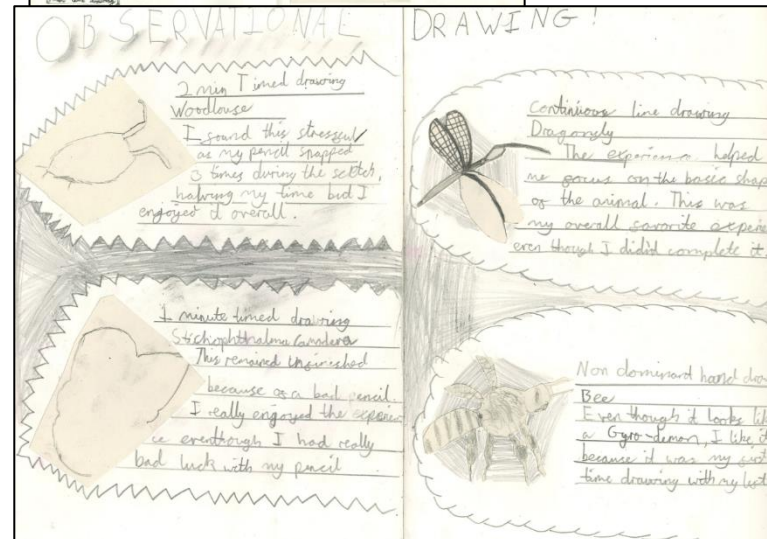 OBSERVATIONAL DRAWING!
2 min Timed drawing
Woodlouse
I found this stressful
as my pencil snapped
3 times during the sketch,
halving my time but I
enjoyed it overall.
1 minute timed drawing
Stichophthalma Camadeva
This remained unfinished
because of a bad pencil.
I really enjoyed the experien
ce eventhough I had really
bad luck with my pencil
Continuous line drawing
Dragonfly
The experience helped
me focus on the basic shap
of the animal. This was
my overall favorite experie
even though I didn't complete it.
Non dominant hand dra
Bee
Even though it looks lik
a Gyro-demon, I like it
because it was my first
time drawing with my left